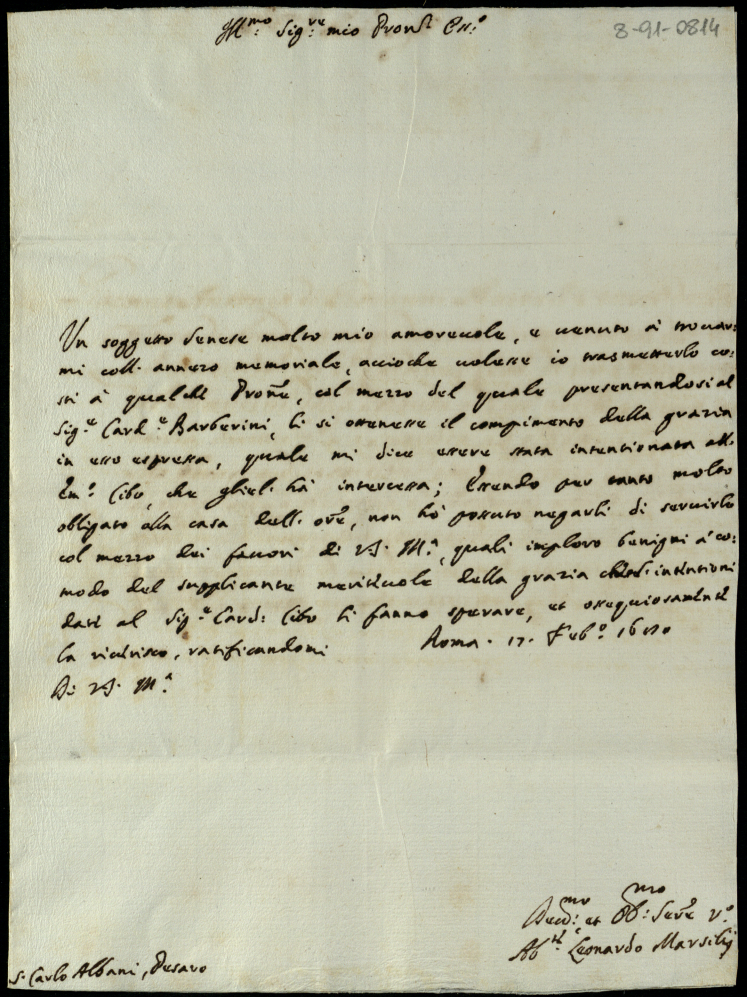 Ill.mo Sig.re mio Pron.
8-91-0814
Un soggetto Senese molto mio amoreuole, e uenuto à trouar:
mi coll' annesso memoriale, accioche uolesse io trasmetterlo co:
sti à qualche Prone, col mezzo del quale presentandosi al
Sig.e Card.e Barberini, li si ottenesse il compimento della grazia
in esso espressa, quale mi dice essere stata intentionata all'
Em.o Cibo, che gliel' hà intercessa; Essendo per tanto molto
obligato alla casa dell' ore, non hò possuto negarli di seruirlo
col mezzo dei fauori di VS. Ill.ma, quali imploro benigni à co:
modo del supplicante meriteuole della grazia intentioni
dati al Sig.e Card: Cibo li fanno sperare, et ossequiosamente
la riuerisco, ratificandomi Roma. 17. Feb.o
Di VS. Ill.ma
Deu.mo et Ob.mo Seru.e V.o
Ab.te Leonardo Marsilij
S. Carlo Albani, Pesaro